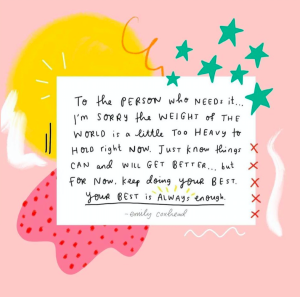 To the PERSON who NEEDS it...
I'm SORRY the WEIGHT of THE
WORLD is a little TOO HEAVY to
HOLD right NOW. JUST KNOW things
CAN and WILL GET BETTER... but
FOR NOW, keep doing youR BEST.
youR BEST is ALWAYS enough.
-emily coxhead